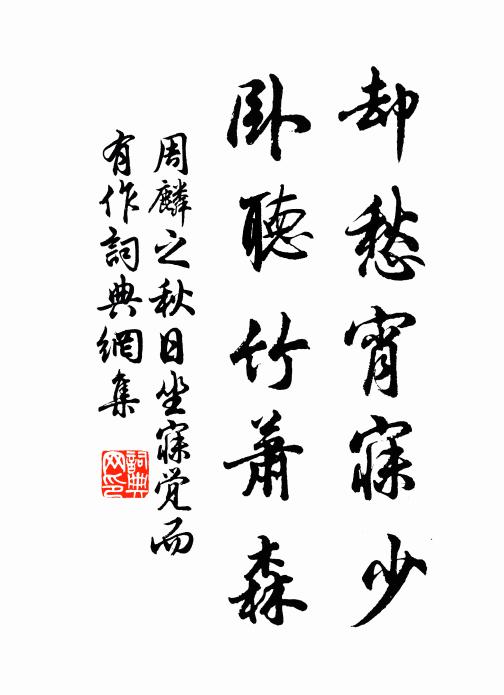 却愁宵寐少
卧聽竹蕭森
周麟之秋日坐寐觉而
有作詞典網集
詞典网印